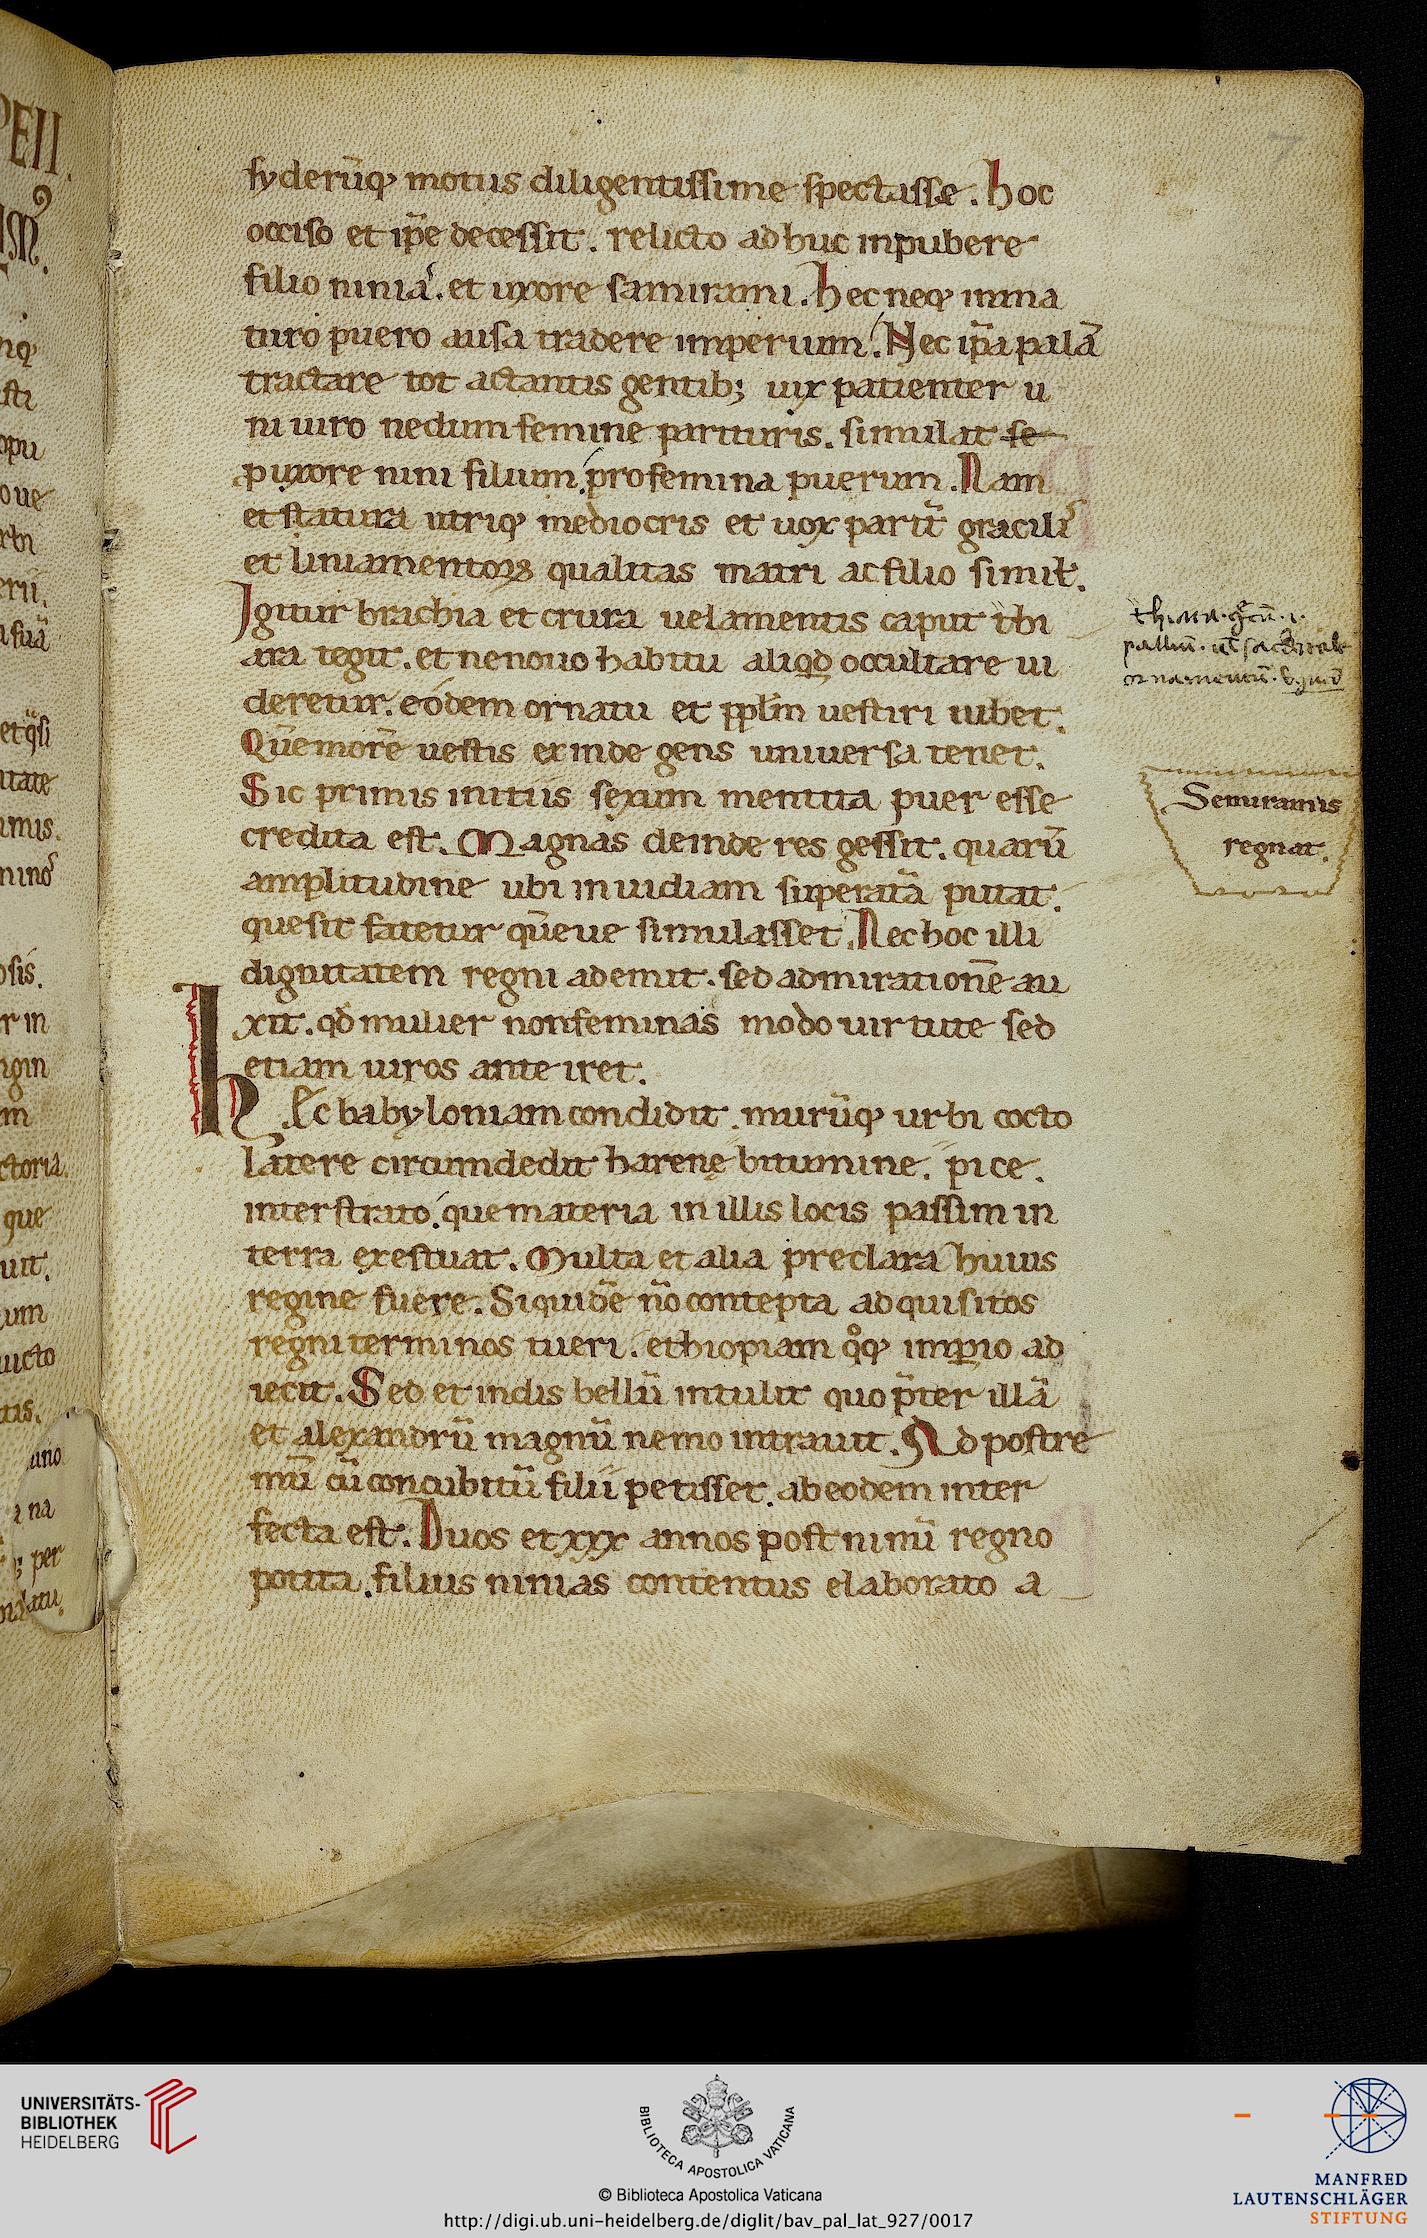 syderūq; motus diligentissime spectasse. hoc
occiso et ip̄e decessit. relicto adhuc inpubere
filio ninia. et uxore samirami. hec neq; inma
turo puero ausa tradere imperium. Nec ip̄a palā
tractare tot ac tantis gentib; uix patienter u
ni uiro nedum femine parituris. simulat se
p uxore nini filium. pro femina puerum. Nam
et statura utriq; mediocris et uox parit̄ gracilis
et liniamentoꝝ qualitas matri ac filio simił.
Igitur brachia et crura uelamentis caput thi
ara tegit. et ne nouo habitu aliqd occultare ui
deretur. eodem ornatu et pplm̄ uestiri iubet.
Quē morē uestis exinde gens uniuersa tenet.
Sic primis initiis sexum mentita puer esse
credita est. Magnas deinde res gessit. quarū
amplitudine ubi inuidiam superatā putat.
que sit fatetur quēue simulasset. Nec hoc illi
dignitatem regni ademit. sed admirationē au
xit. qd̄ mulier non feminas modo uirtute sed
etiam uiros ante iret.
hęc babyloniam condidit. murūq; urbi cocto
latere circumdedit harenę bitumine. pice.
interstrato. que materia in illis locis passim in
terra exestuat. Multa et alia preclara huius
regine fuere. Siquidē n̄ contepta adquisitos
regni terminos tueri. ethiopiam qͦq; imꝑio ad
iecit. Sed et indis bellū intulit quo p̄ter illā
et alexandrū magnū nemo intrauit. Ad postre
mū cū concubitū filii petisset. ab eodem inter
fecta est. Duos et xxx annos post ninū regno
potita. filius ninias contentus elaborato a
7
Semiramis
regnat.
UNIVERSITÄTS-
BIBLIOTHEK
HEIDELBERG
BIBLIOTECA APOSTOLICA VATICANA
© Biblioteca Apostolica Vaticana
http://digi.ub.uni-heidelberg.de/diglit/bav_pal_lat_927/0017
MANFRED
LAUTENSCHLÄGER
STIFTUNG